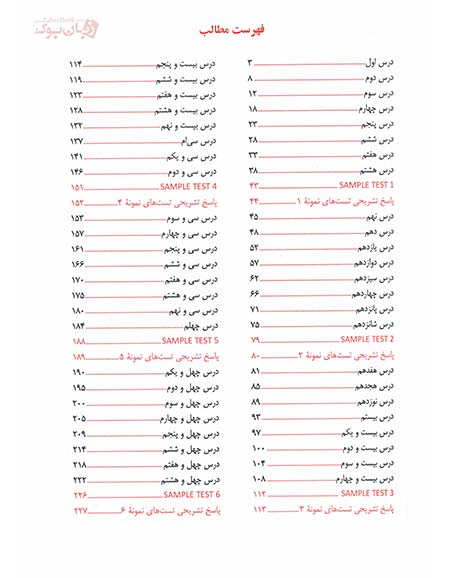 زبان‌بوک
ZabanBook
فهرست مطالب
درس اول ۳
درس دوم ۸
درس سوم ۱۲
درس چهارم ۱۸
درس پنجم ۲۳
درس ششم ۲۸
درس هفتم ۳۳
درس هشتم ۳۸
SAMPLE TEST 1 ۴۳
پاسخ تشریحی تست‌های نمونهٔ ۱ ۴۴
درس نهم ۴۵
درس دهم ۴۸
درس یازدهم ۵۲
درس دوازدهم ۵۷
درس سیزدهم ۶۲
درس چهاردهم ۶۶
درس پانزدهم ۷۱
درس شانزدهم ۷۵
SAMPLE TEST 2 ۷۹
پاسخ تشریحی تست‌های نمونهٔ ۲ ۸۰
درس هفدهم ۸۱
درس هجدهم ۸۵
درس نوزدهم ۸۹
درس بیستم ۹۳
درس بیست و یکم ۹۷
درس بیست و دوم ۱۰۰
درس بیست و سوم ۱۰۴
درس بیست و چهارم ۱۰۸
SAMPLE TEST 3 ۱۱۲
پاسخ تشریحی تست‌های نمونهٔ ۳ ۱۱۳
درس بیست و پنجم ۱۱۴
درس بیست و ششم ۱۱۹
درس بیست و هفتم ۱۲۳
درس بیست و هشتم ۱۲۸
درس بیست و نهم ۱۳۲
درس سی‌ام ۱۳۷
درس سی و یکم ۱۴۱
درس سی و دوم ۱۴۶
SAMPLE TEST 4 ۱۵۱
پاسخ تشریحی تست‌های نمونهٔ ۴ ۱۵۲
درس سی و سوم ۱۵۳
درس سی و چهارم ۱۵۷
درس سی و پنجم ۱۶۱
درس سی و ششم ۱۶۶
درس سی و هفتم ۱۷۰
درس سی و هشتم ۱۷۵
درس سی و نهم ۱۸۰
درس چهلم ۱۸۴
SAMPLE TEST 5 ۱۸۸
پاسخ تشریحی تست‌های نمونهٔ ۵ ۱۸۹
درس چهل و یکم ۱۹۰
درس چهل و دوم ۱۹۵
درس چهل و سوم ۲۰۰
درس چهل و چهارم ۲۰۵
درس چهل و پنجم ۲۰۹
درس چهل و ششم ۲۱۴
درس چهل و هفتم ۲۱۸
درس چهل و هشتم ۲۲۲
SAMPLE TEST 6 ۲۲۶
پاسخ تشریحی تست‌های نمونهٔ ۶ ۲۲۷